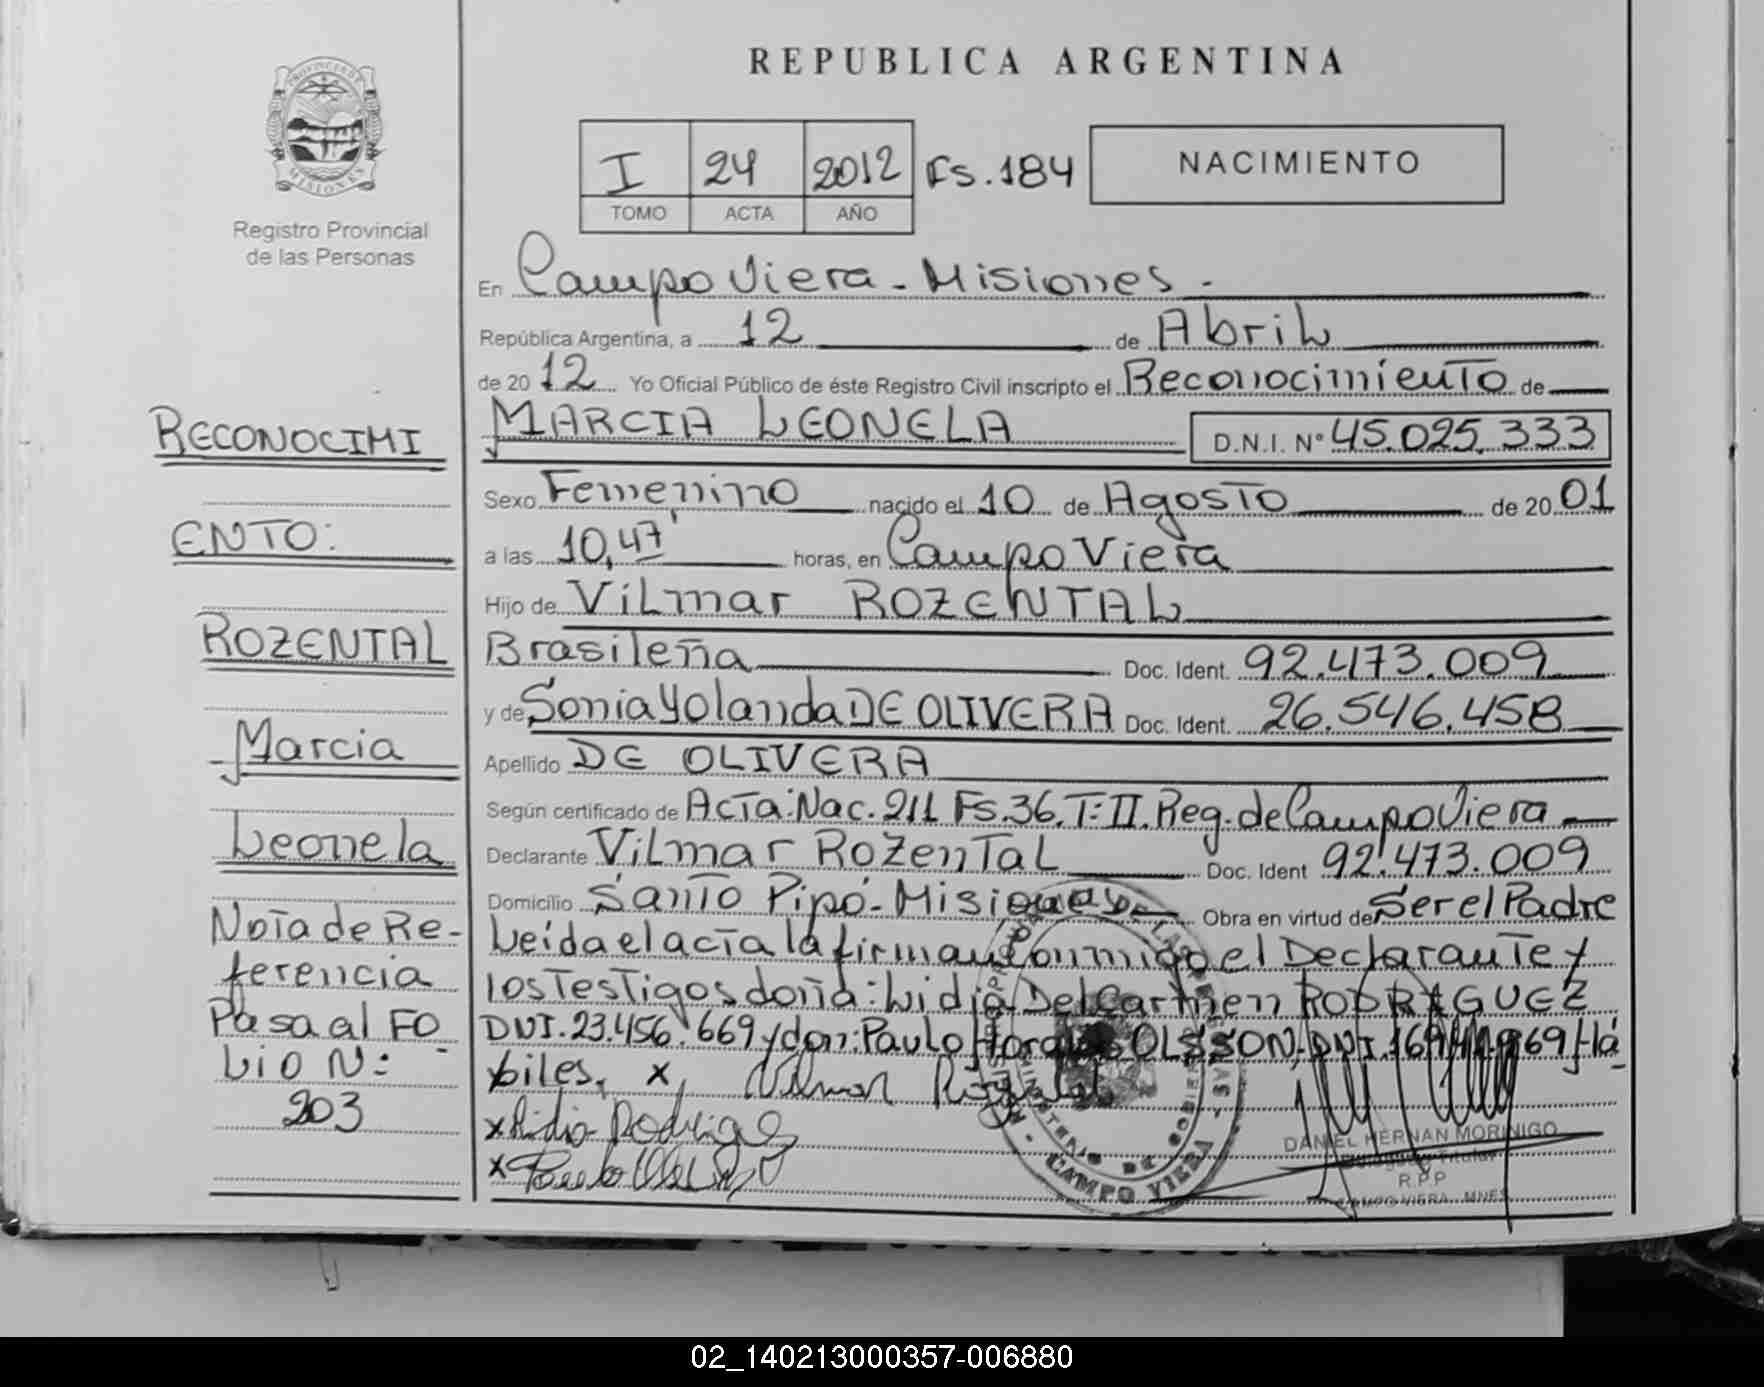 REPUBLICA ARGENTINA
PROVINCIA DE MISIONES
Registro Provincial
de las Personas
I 24 2012 Fs.184 NACIMIENTO
TOMO ACTA AÑO
En Campo Viera - Misiones -
República Argentina, a 12 de Abril
de 20 12 Yo Oficial Público de éste Registro Civil inscripto el Reconocimiento de
MARCIA LEONELA D.N.I. Nº 45.025.333
Sexo Femenino nacido el 10 de Agosto de 20 01
a las 10,47' horas, en Campo Viera
Hijo de Vilmar ROZENTAL
Brasileña Doc. Ident. 92.473.009
y de Sonia Yolanda DE OLIVERA Doc. Ident. 26.546.458
Apellido DE OLIVERA
Según certificado de Acta: Nac. 211 Fs. 36. T: II. Reg. de Campo Viera
Declarante Vilmar Rozental Doc. Ident 92.473.009
Domicilio Santo Pipó - Misiones Obra en virtud de Ser el Padre
Leída el acta la firman conmigo el Declarante y
los Testigos doña: Lidia Del Carmen RODRIGUEZ
DNI. 23.456.669 y don: Paulo OLSSON, DNI. Há
biles. x, Vilmar Rozental
x Lidia Rodriguez
x Paulo
RECONOCIMI
ENTO:
ROZENTAL
Marcia
Leonela
Nota de Re-
ferencia
Pasa al FO
LIO N:
203
CAMPO VIERA
DANIEL HERNAN MORINIGO
Delegado Titular
R.P.P
CAMPO VIERA MNES
02_140213000357-006880